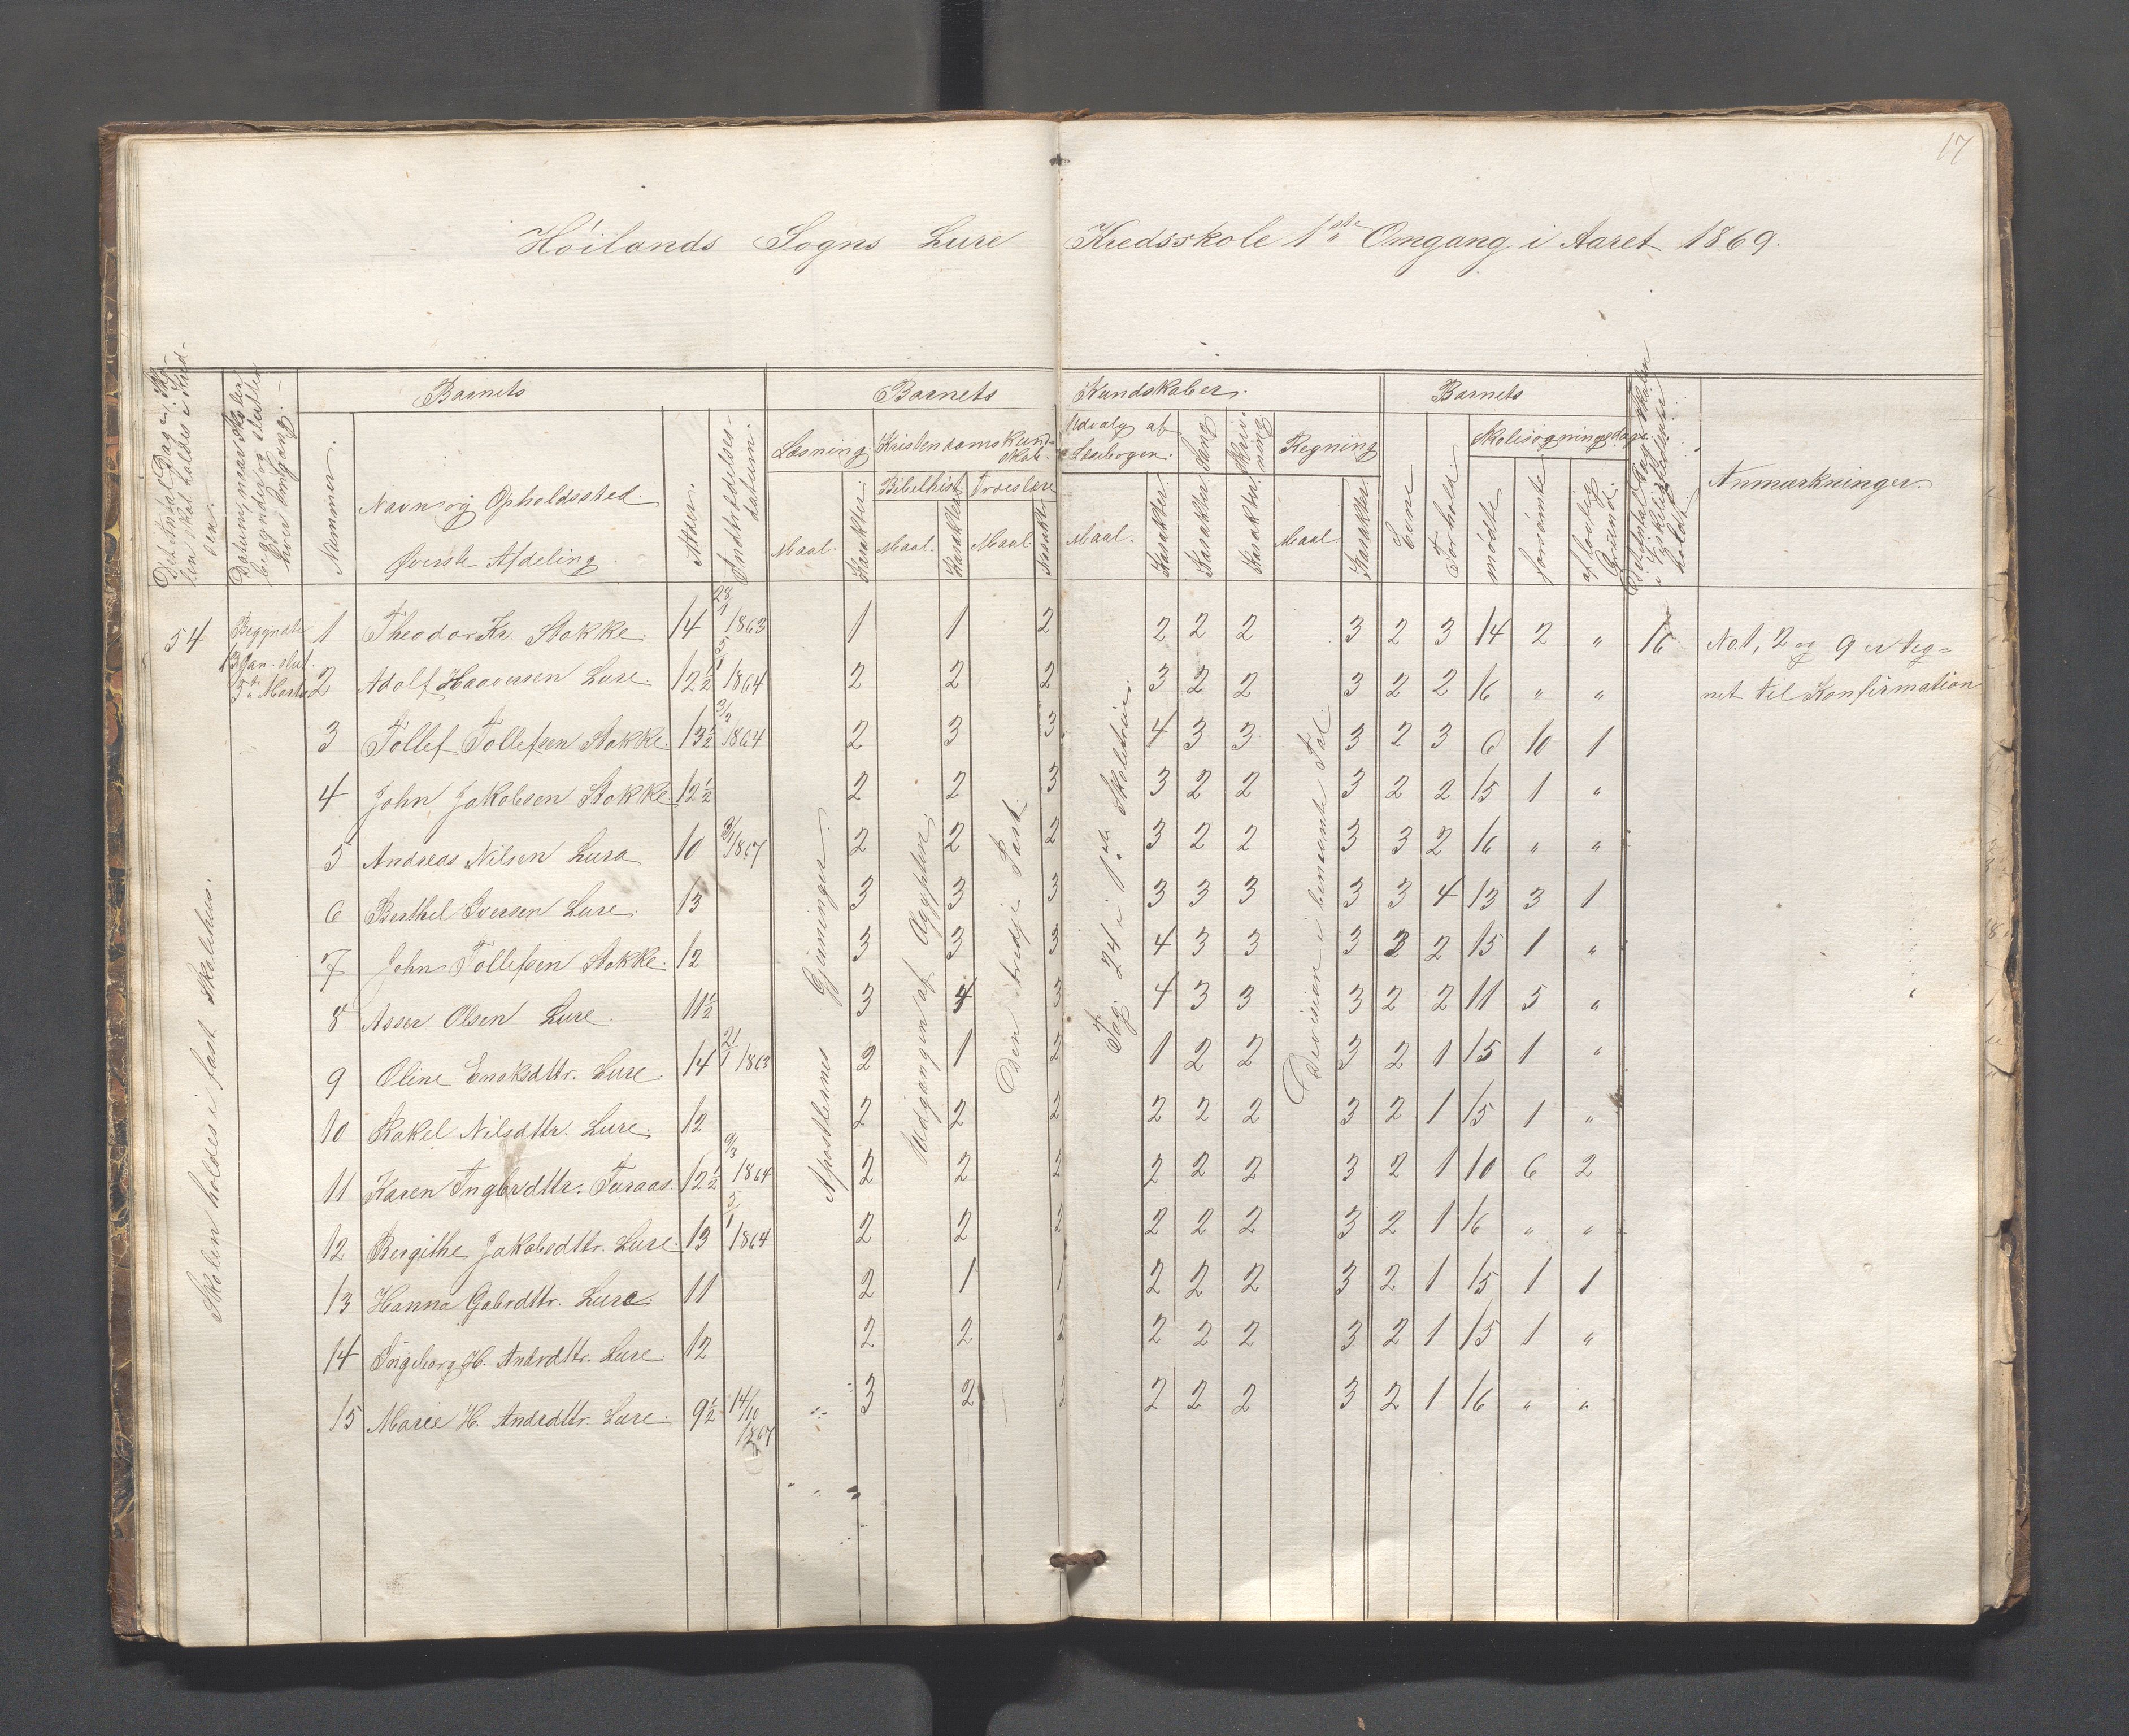 17
Høilands Sogns Lure Kredsskole 1ste Omgang i Aaret 1869.
Det Antal Dage, Sko-
len skal holdes i Kred-
sen.
Datum, naar Skolen
begyndes og sluttes
hver Omgang.
Barnets
Nummer.
Navn og Opholdssted.
Øverste Afdeling.
Alder.
Indtrædelses-
datum.
Barnets Kundskaber.
Læsning.
Maal.
Karakter.
Kristendomskund-
skab.
Bibelhist.
Maal.
Karakter.
Troeslære
Maal.
Karakter.
Udvalg af
Læsebogen.
Maal.
Karakter.
Sang.
Karakter.
Skriv-
ning.
Karakter.
Regning
Maal.
Karakter.
Barnets
Evne
Forhold.
Skolesøgningsdage.
mødte
forsømte
af lovlig
Grund.
i Virkeligheden
holdt.
Anmærkninger.
54 Begyndte 1 Theodor Kr. Stokke. 14 28/1 1863 1 1 2 2 2 2 3 2 3 14 2 " 16 No. 1, 2 og 9 er teg=
13 Jan. slut. 5te Marts 2 Adolf Haaversen Lure. 12½ 5/1 1864 2 2 2 3 2 2 3 2 2 16 " " net til Konfirmation
3 Tollef Tollefsen Stokke. 13½ 3/2 1864 2 3 3 4 3 3 3 2 3 6 10 1
4 John Jakobsen Stokke. 12½ 2 2 3 3 2 2 3 2 2 15 1 "
5 Andreas Nilsen Lura 10 3/1 1867 2 2 2 3 2 2 3 3 2 16 " "
6 Berthel Iversen Lure. 13 3 3 3 3 3 3 3 3 4 13 3 1
7 John Tollefsen Stokke. 12 3 3 3 4 3 3 3 2 2 15 1 "
8 Asser Olsen Lure. 11½ 3 4 3 4 3 3 3 2 2 11 5 "
9 Oline Enoksdttr. Lure. 14 21/1 1863 2 1 2 1 2 2 3 2 1 15 1 "
10 Rakel Nilsdttr. Lure. 12 2 2 2 2 2 2 3 2 1 15 1 "
11 Karen Ingbrdttr. Furaas. 12½ 9/3 1864 2 2 2 2 2 2 3 2 1 10 6 2
12 Bergithe Jakobsdttr. Lure. 13 5/1 1864 2 2 2 2 2 2 3 2 1 16 " "
13 Hanna Gabrdttr. Lure. 11 2 1 1 2 2 2 3 2 1 15 1 1
14 Ingeborg H. Andrdttr. Lure. 12 2 2 2 2 2 2 3 2 1 15 1 "
15 Marie H. Andrdttr. Lure. 9½ 14/10 1867 3 2 2 2 2 3 2 1 16 " "
Skolen holdes i fast Skolehus.
Apostlernes Gjerninger.
Udgangen af Ægypten.
Den tredje Part.
Fag 24 i 1ste Skoletrin.
Division i benævnte Tal.